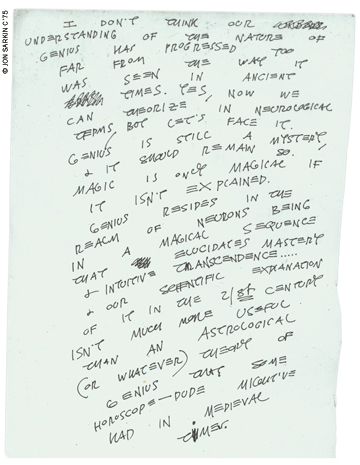 © JON SARKIN C'75
I DON'T THINK OUR
UNDERSTANDING OF THE NATURE OF
GENIUS HAS PROGRESSED TOO
FAR FROM THE WAY IT
WAS SEEN IN ANCIENT
TIMES. YES, NOW WE
CAN THEORIZE IN NEUROLOGICAL
TERMS, BUT LET'S FACE IT.
GENIUS IS STILL A MYSTERY
& IT SHOULD REMAIN SO.
MAGIC IS ONLY MAGICAL IF
IT ISN'T EXPLAINED.
GENIUS RESIDES IN THE
REALM OF NEURONS BEING
IN A MAGICAL SEQUENCE
THAT ELUCIDATES MASTERY
& INTUITIVE TRANSCENDENCE.....
& OUR SCIENTIFIC EXPLANATION
OF IT IN THE 21st CENTURY
ISN'T MUCH MORE USEFUL
THAN AN ASTROLOGICAL
(OR WHATEVER) THEORY OF
GENIUS THAT SOME
HOROSCOPE-DUDE
HAD IN MEDIEVAL
TIMES.